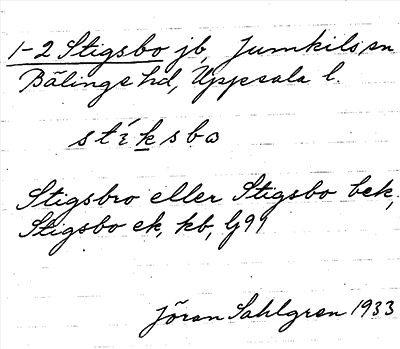 1-2 Stigsbo jb, Jumkils sn
Bälinge hd, Uppsala l.
stiksbɷ
Stigsbro eller Stigsbo bek,
Stigsbo ek, kb, G91
Jöran Sahlgren 1933